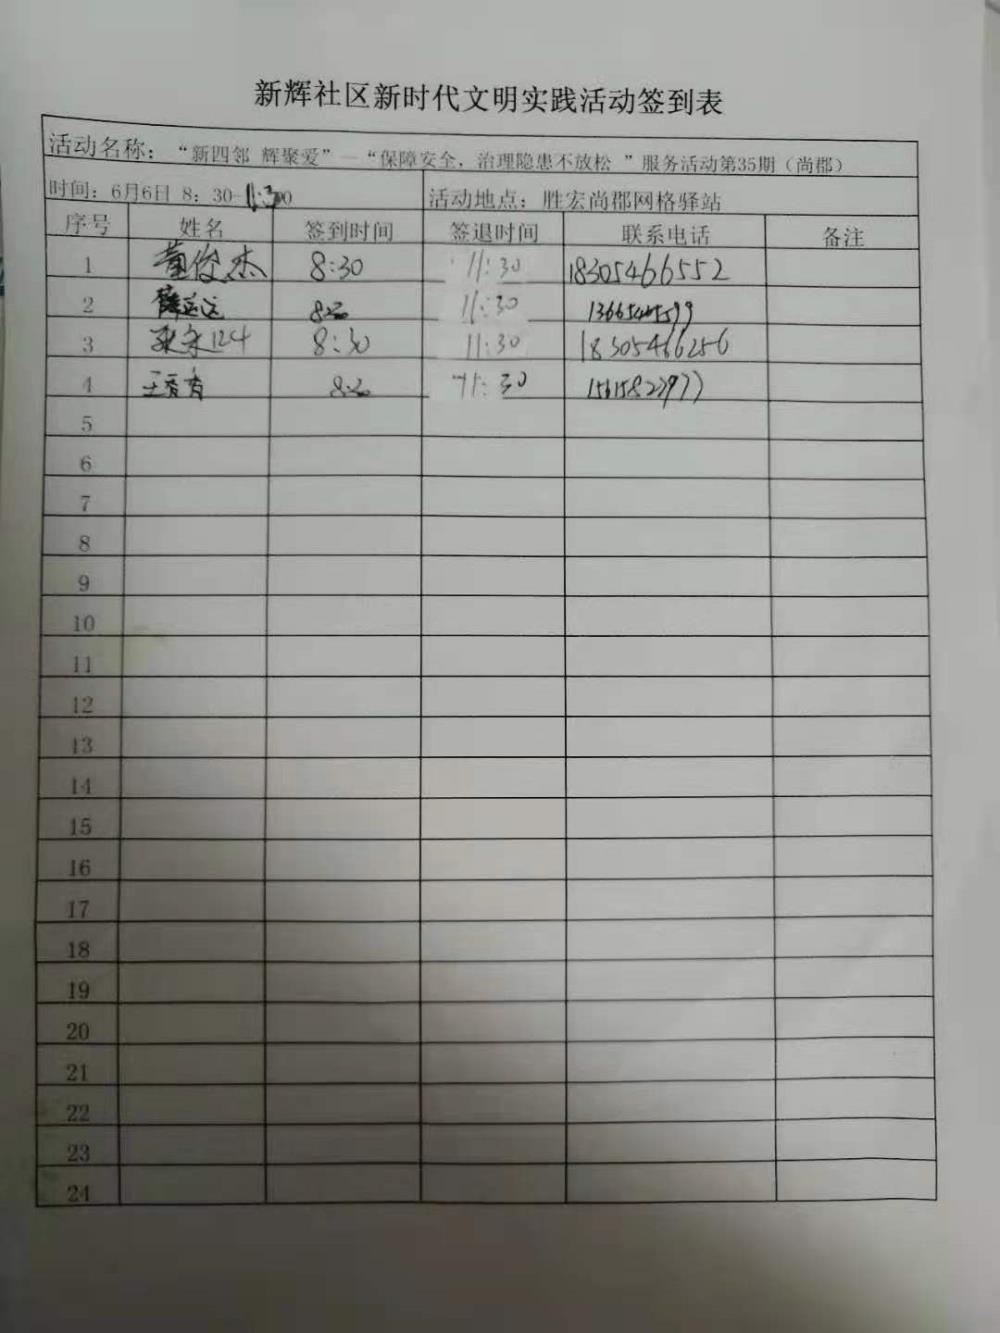 新辉社区新时代文明实践活动签到表
活动名称：“新四邻 辉聚爱”—“保障安全，治理隐患不放松 ”服务活动第35期（尚郡）
时间：6月6日 8：30-11:30 活动地点：胜宏尚郡网格驿站
序号 姓名 签到时间 签退时间 联系电话 备注
1 董俊杰 8:30 11:30 18305466552
2 8:30 11:30
3 8:30 11:30 18305466256
4 王香香 8:30 11:30 15615827977
5
6
7
8
9
10
11
12
13
14
15
16
17
18
19
20
21
22
23
24